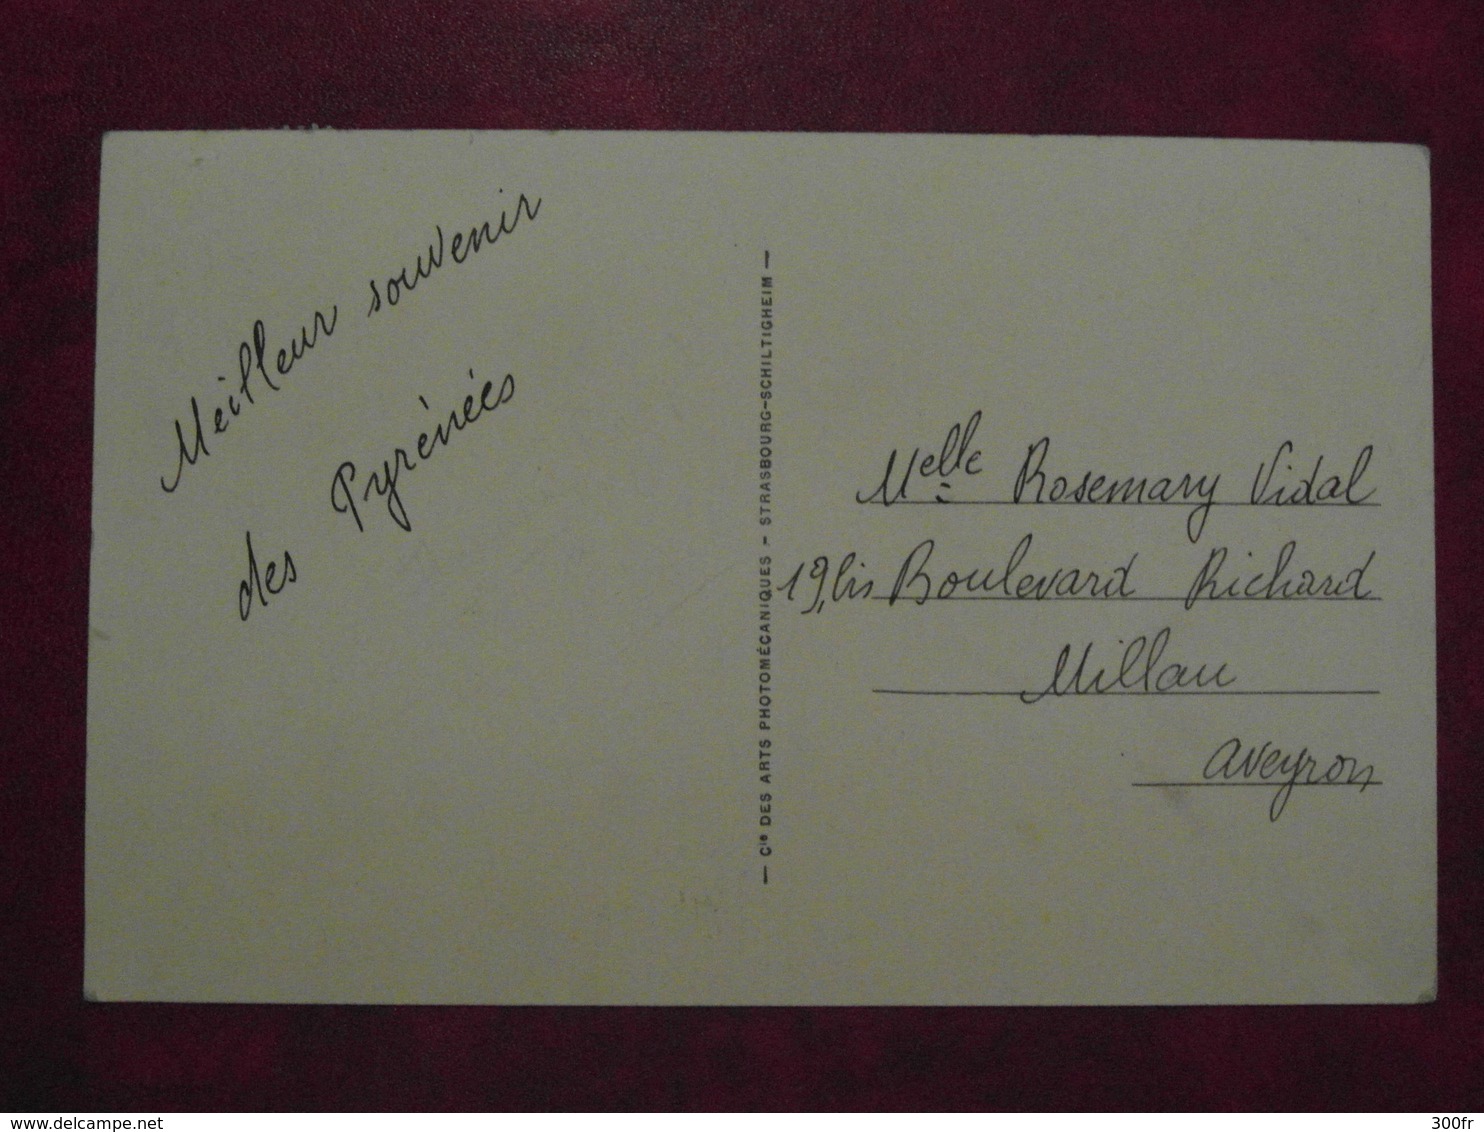 Meilleur souvenir
des Pyrénées
— Cie DES ARTS PHOTOMÉCANIQUES - STRASBOURG-SCHILTIGHEIM —
Melle Rosemary Vidal
19, bis Boulevard Richard
Millau
Aveyron
delcampe.net
300fr